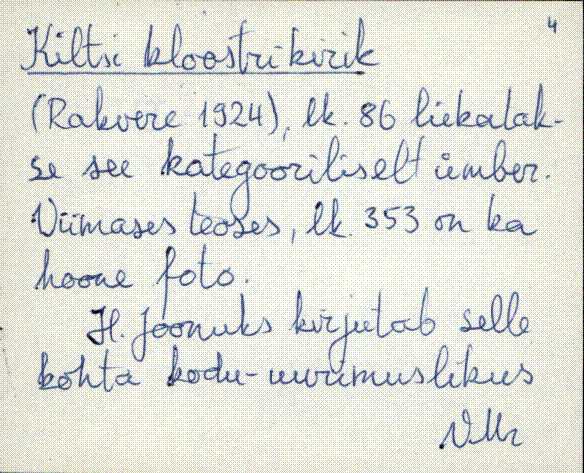 4
Kiltsi kloostrikirik
(Rakvere 1924), lk. 86 lükatak-
se see kategooriliselt ümber.
Viimases teoses, lk. 353 on ka
hoone foto.
H. Joonuks kirjutab selle
kohta kodu-uurimuslikus